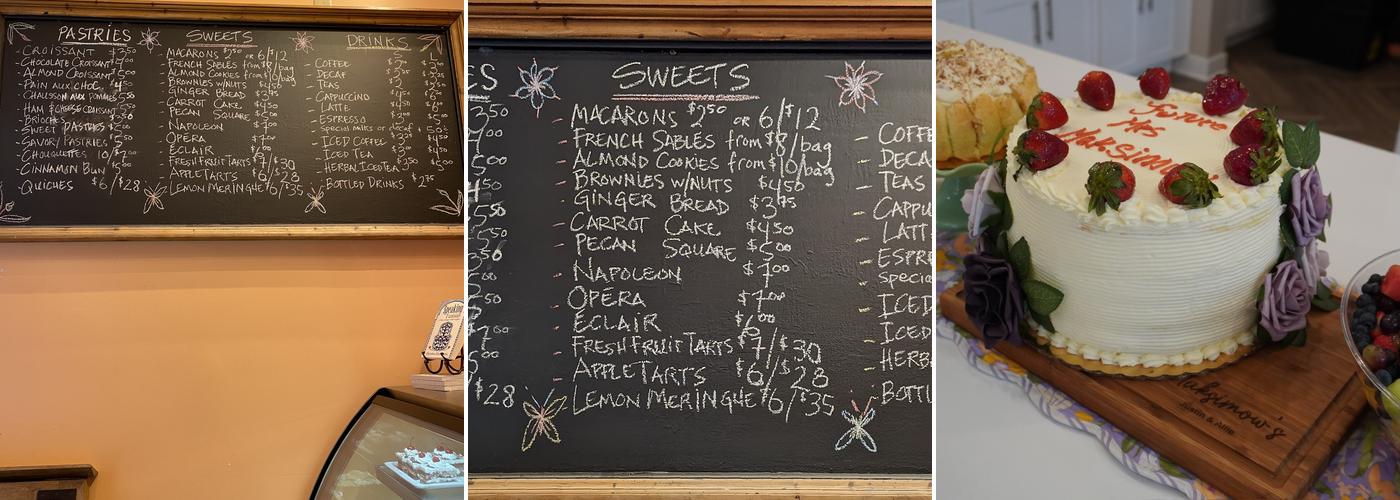 PASTRIES
- CROISSANT $3.50
- CHOCOLATE CROISSANT
- ALMOND CROISSANT
- PAIN AUX CHOC.
- CHAUSSON AUX POMMES
- HAM & CHEESE CROISSANT
- BRIOCHES
- SWEET PASTRIES
- SAVORY PASTRIES
- CHOUQUETTES
- CINNAMON BUN
- QUICHES $6/$28
SWEETS
- MACARONS $2.50 OR 6/$12
- FRENCH SABLES from $8/bag
- ALMOND COOKIES from $10/bag
- BROWNIES W/NUTS $4.50
- GINGER BREAD $3.75
- CARROT CAKE $4.50
- PECAN SQUARE $5.00
- NAPOLEON $7.00
- OPÉRA $7.00
- ÉCLAIR $6.00
- FRESH FRUIT TARTS $7/$30
- APPLE TARTS $6/$28
- LEMON MERINGUE $6/$35
DRINKS
- COFFEE
- DECAF
- TEAS
- CAPPUCCINO
- LATTE
- ESPRESSO
- ICED COFFEE
- ICED TEA
- HERBAL ICED TEA
- BOTTLED DRINKS $2.75
Speaking
SWEETS
- MACARONS $2.50 OR 6/$12
- FRENCH SABLES from $8/bag
- ALMOND COOKIES from $10/bag
- BROWNIES W/NUTS $4.50
- GINGER BREAD $3.75
- CARROT CAKE $4.50
- PECAN SQUARE $5.00
- NAPOLEON $7.00
- OPÉRA $7.00
- ÉCLAIR $6.00
- FRESH FRUIT TARTS $7/$30
- APPLE TARTS $6/$28
- LEMON MERINGUE $6/$35
Future
Mrs
Maksimow's
Justin & Allie